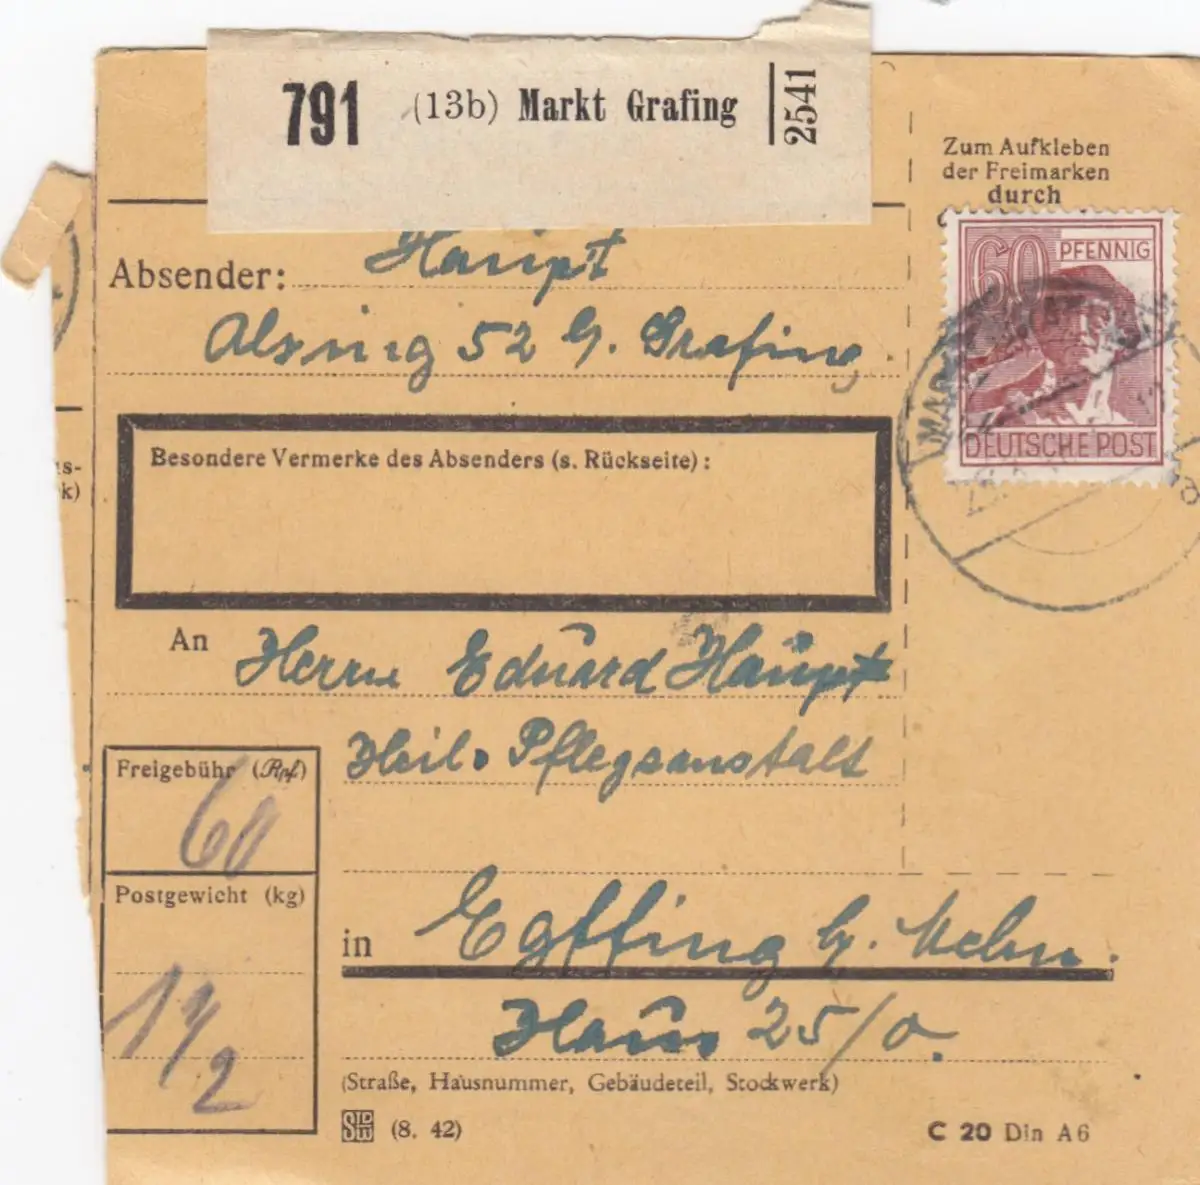 791 (13b) Markt Grafing 2541
Zum Aufkleben
der Freimarken
durch
60 PFENNIG
DEUTSCHE POST
Absender: Haupt
52 b. Grafing.
Besondere Vermerke des Absenders (s. Rückseite):
s-
k)
An Herrn Eduard Haupt
Heil. Pflegsanstalt
Freigebühr (Rpf)
60
Postgewicht (kg)
1 1/2
in Egffing b.
Haus 25/0.
(Straße, Hausnummer, Gebäudeteil, Stockwerk)
(8. 42)
C 20 Din A6